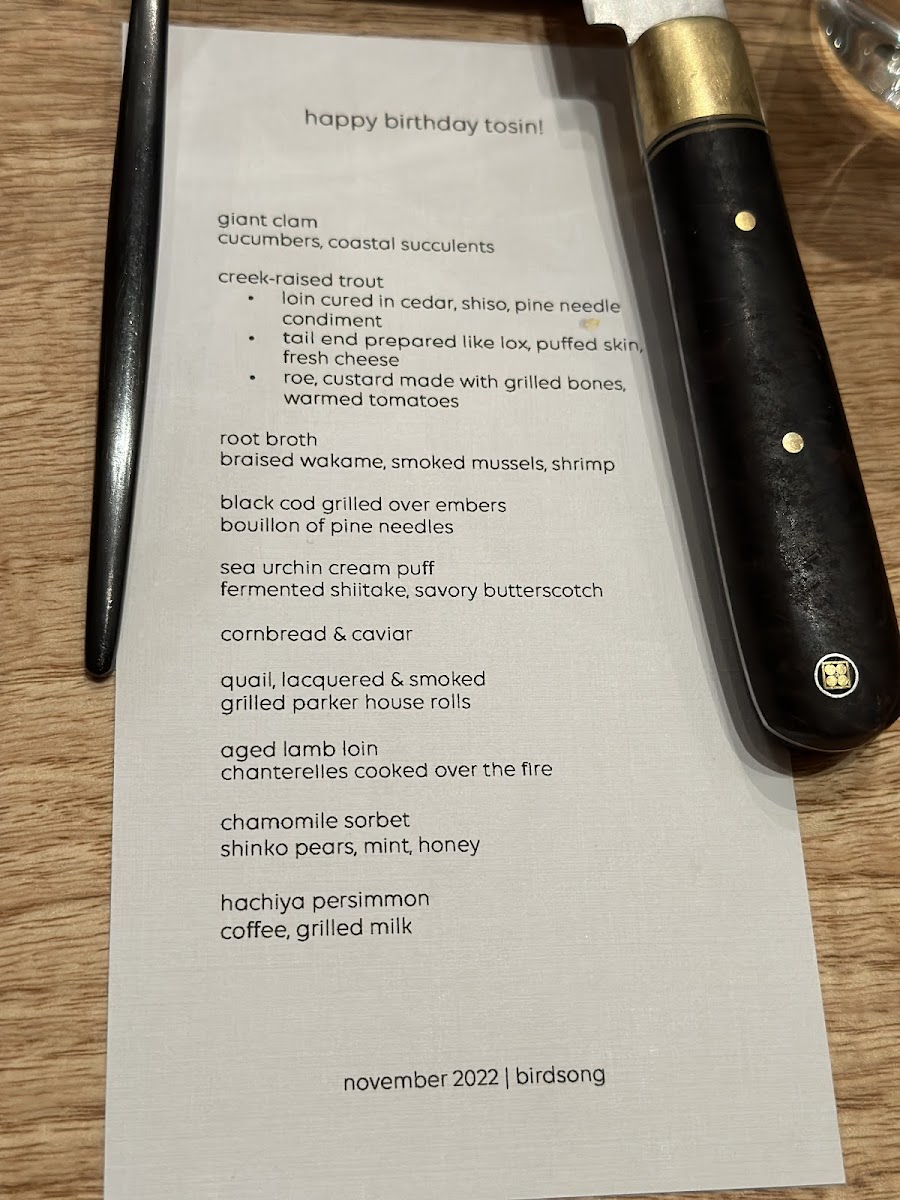 happy birthday tosin!
giant clam
cucumbers, coastal succulents
creek-raised trout
• loin cured in cedar, shiso, pine needle
condiment
• tail end prepared like lox, puffed skin,
fresh cheese
• roe, custard made with grilled bones,
warmed tomatoes
root broth
braised wakame, smoked mussels, shrimp
black cod grilled over embers
bouillon of pine needles
sea urchin cream puff
fermented shiitake, savory butterscotch
cornbread & caviar
quail, lacquered & smoked
grilled parker house rolls
aged lamb loin
chanterelles cooked over the fire
chamomile sorbet
shinko pears, mint, honey
hachiya persimmon
coffee, grilled milk
november 2022 | birdsong